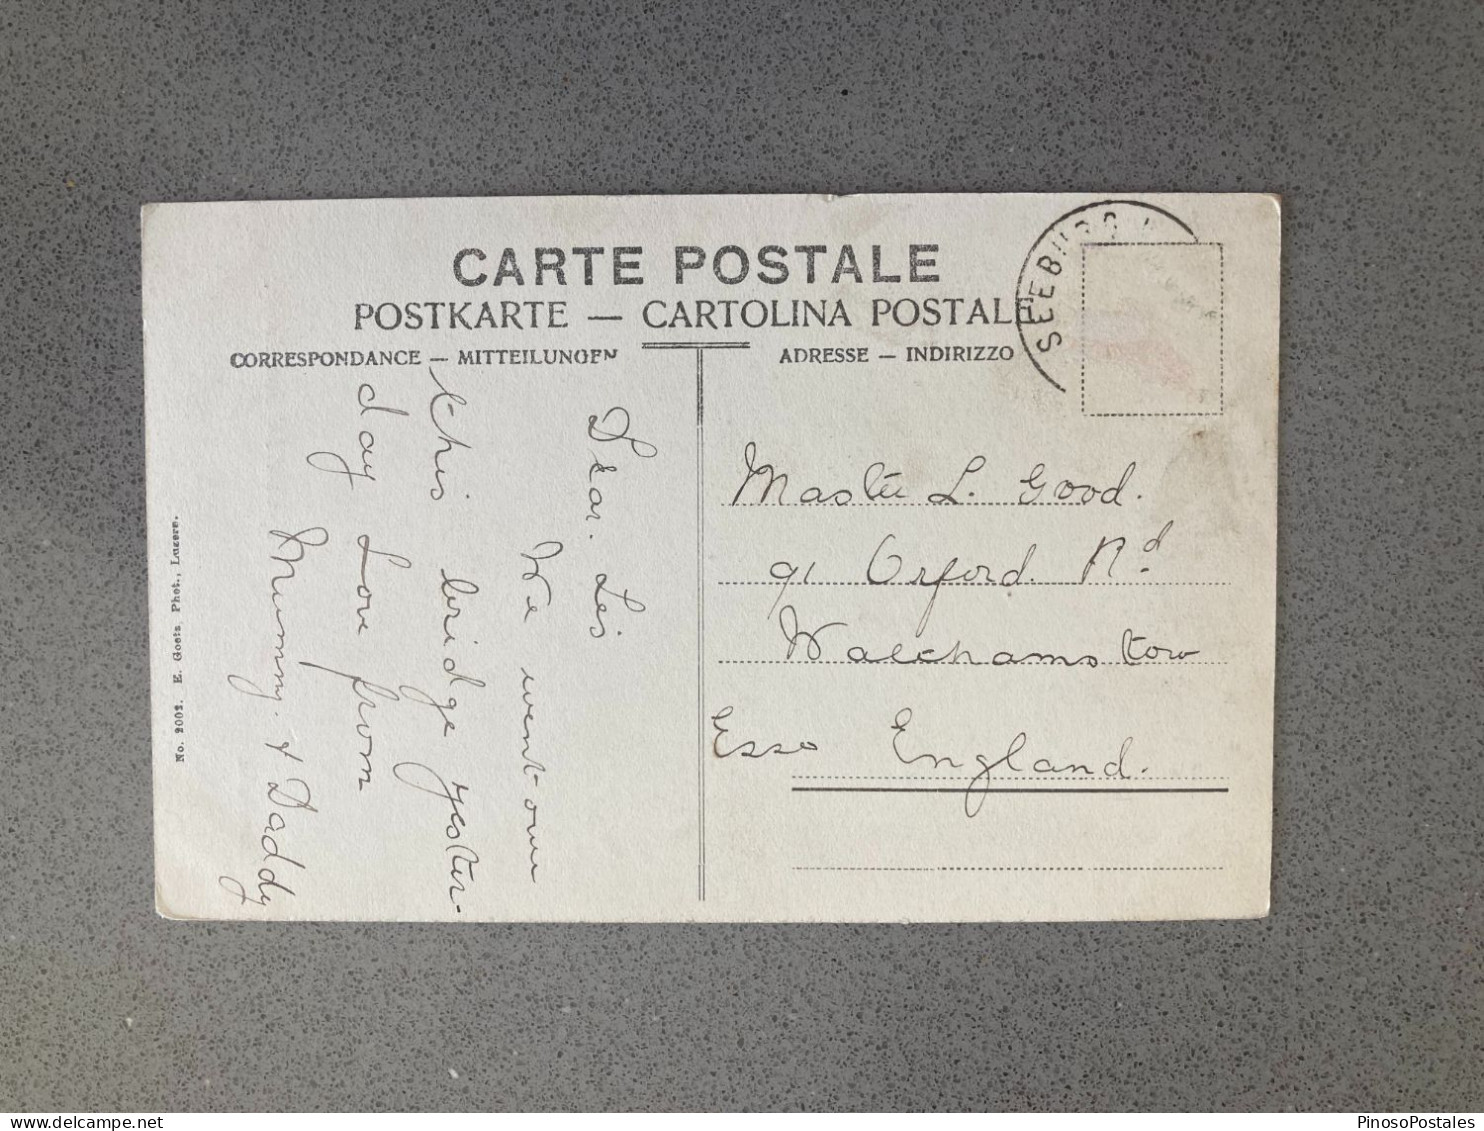 CARTE POSTALE
POSTKARTE — CARTOLINA POSTALE
CORRESPONDANCE — MITTEILUNGEN
ADRESSE — INDIRIZZO
SEEBURG
Dear. Les
We went over
this bridge yester-
day Love from
Mummy. & Daddy
Master L. Good.
91 Orford. Rd
Walthamstow
Esso England.
No. 2002. E. Goetz, Phot., Luzern.
PinosoPostales